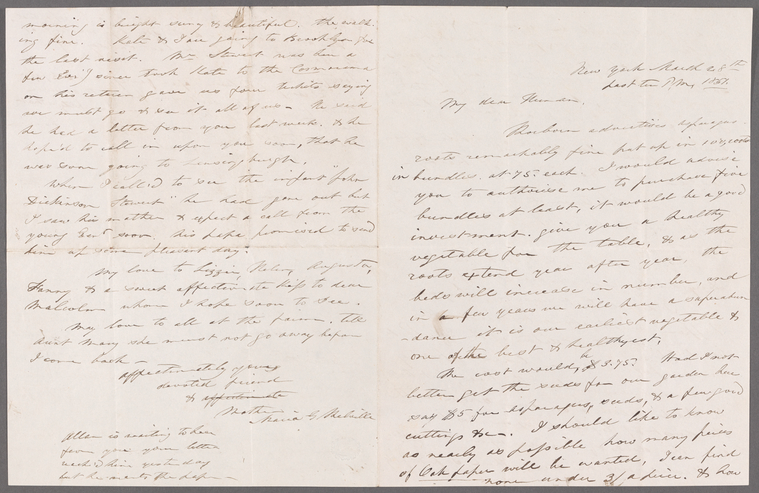 New York March 28th
past ten P.M. 1857.
My dear Herman.
Barbour advertises asparagus
roots remarkably fine put up in 100 roots
in bundles. at 75. each. I would advise
you to authorise me to purchase five
bundles at least, it would be a good
investment. give you a healthy
vegetable for the table, & as the
roots extend year after year, the
beds will increase in number, and
in a few years we will have a superabun
-dance it is our earliest vegetable &
one of the best & healthyest,
The cost would, be $3.75. Had I not
better get the seeds for our garden here
say $5 for asparagus, seeds, & a few good
cuttings &c—. I should like to know
as nearly as possible how many pieces
of Oak paper will be wanted, I can find
none under 3/ a piece. & how
morning is bright sunny & beautiful. the walk-
ing fine. Kate & I are going to Brooklyn for
the last visit. Mr Stewart was here a
few Eves since took Kate to the
on his return gave us four tickets saying
we must go & see it all of us— He said
he had a letter from you last week. & he
hoped to call in upon you soon, that he
was soon going to Lansingburgh.
When I called to see the infant "John
Dickinson Stewart" he had gone out but
I saw his mother & expect a call from the
young Gent soon his papa promised to send
him up some pleasant day.
My love to Lizzie, Helen, Augusta,
Fanny & a sweet affectionate kiss to dear
Malcolm whom I hope soon to see.
My love to all at the farm. tell
Aunt Mary she must not go away before
I come back—
affectionately yours
devoted friend
& affectionate
Mother
Maria G Melville
Allan is waiting to hear
from you your letter
reached him yesterday
but he